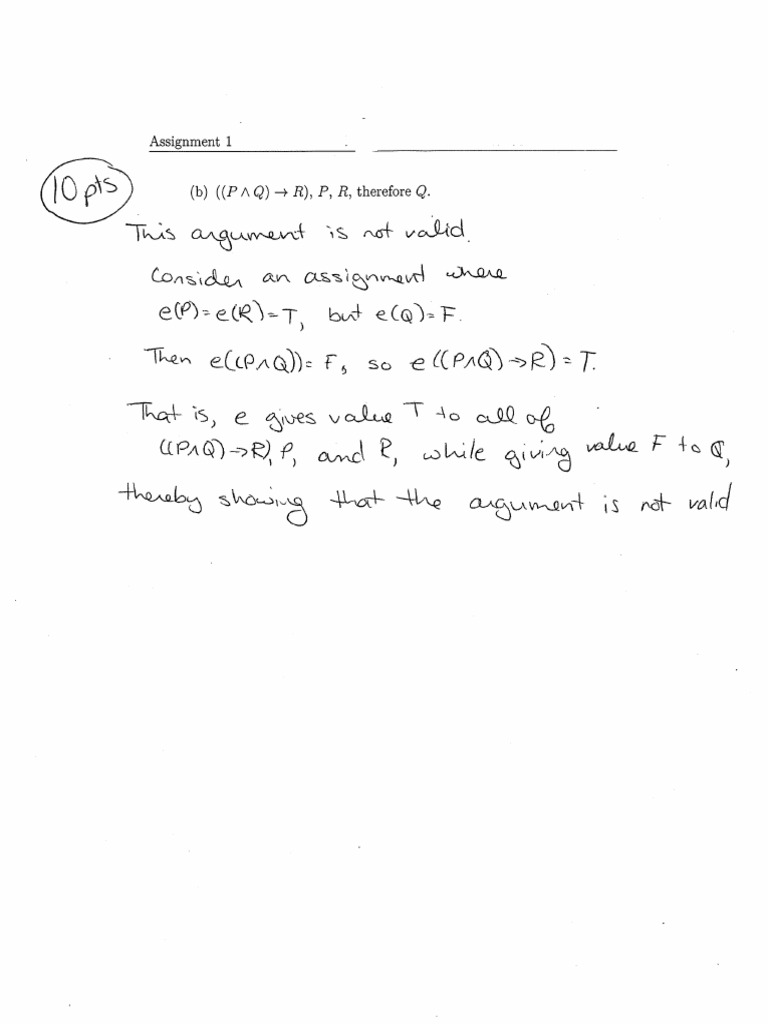 Assignment 1
10 pts
(b) ((P ∧ Q) → R), P, R, therefore Q.
This argument is not valid.
Consider an assignment where
e(P) = e(R) = T, but e(Q) = F.
Then e((P∧Q)) = F, so e((P∧Q) → R) = T.
That is, e gives value T to all of
((P∧Q) → R), P, and R, while giving value F to Q,
thereby showing that the argument is not valid